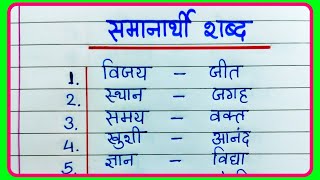 समानार्थी शब्द
1. विजय – जीत
2. स्थान – जगह
3. समय – वक्त
4. खुशी – आनंद
5. ज्ञान – विद्या